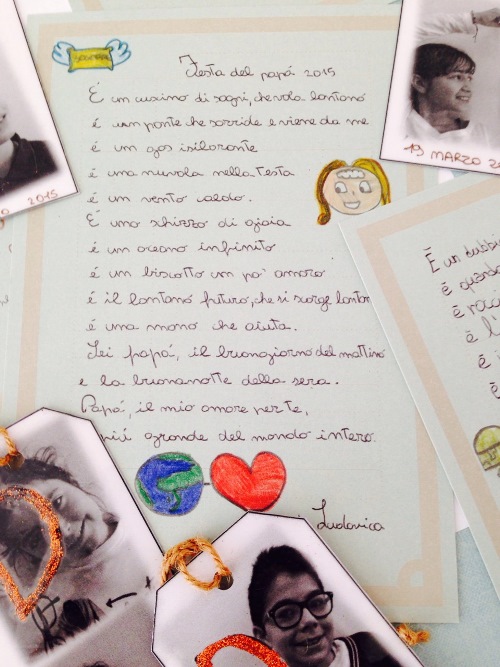 Festa del papá 2015
É un cuscino di sogni, che vola lontano
é un ponte che sorride e viene da me
é un gas esilarante
é una nuvola nella testa
é un vento caldo.
É uno schizzo di gioia
é un oceano infinito
é un biscotto un po' amaro
é il lontano futuro, che si scorge lontan
é una mano che aiuta.
Sei papá, il buongiorno del mattino
e la buonanotte della sera.
Papá, il mio amore per te,
piú grande del mondo intero.
Ludovica
2015
19 MARZO 20
É un dubbi
é quando
é l'
é
é